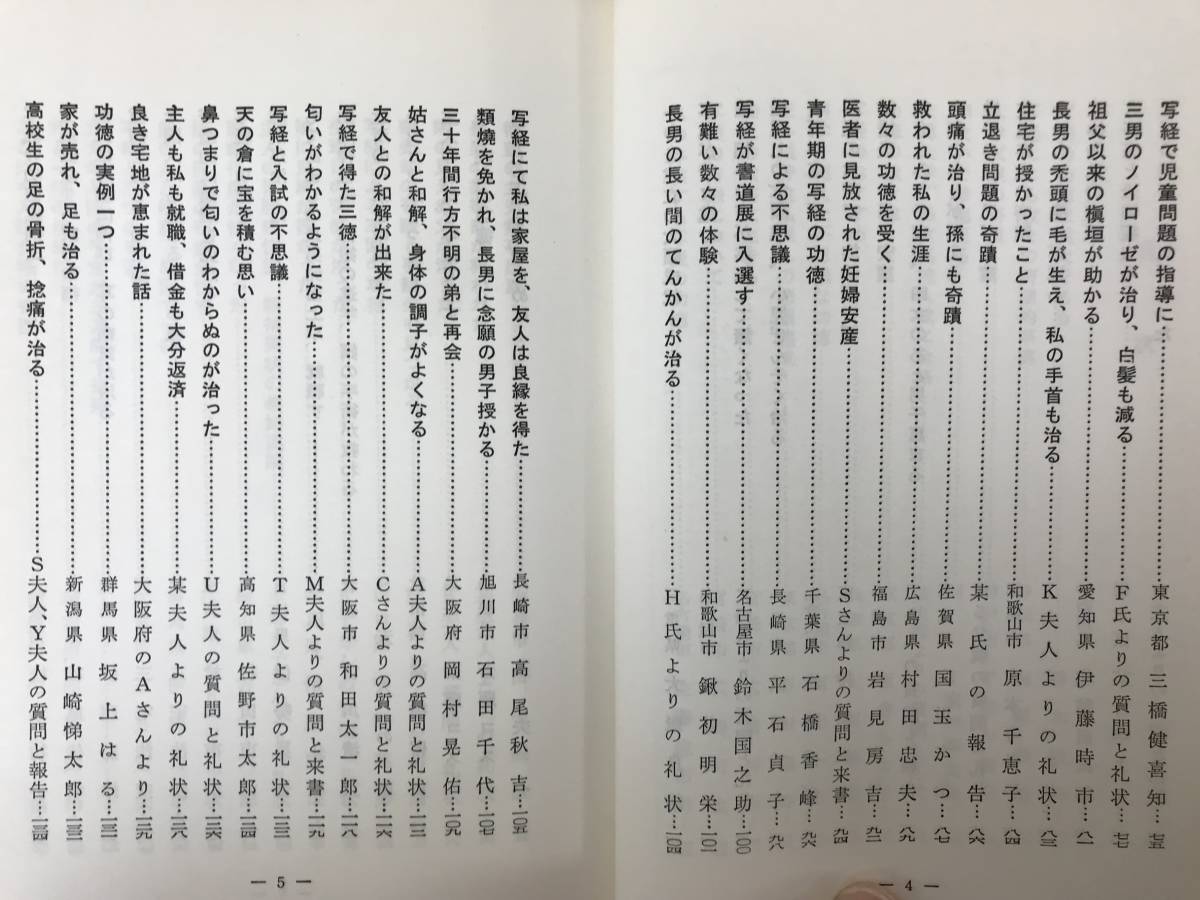 写経で児童問題の指導に……東京都 三橋健喜知…七五
三男のノイローゼが治り、白髪も減る……F氏よりの質問と礼状…七七
祖父以来の槇垣が助かる……愛知県 伊藤時市…八一
長男の禿頭に毛が生え、私の手首も治る……K夫人よりの礼状…八三
住宅が授かったこと……和歌山市 原千恵子…八四
立退き問題の奇蹟……某氏の報告…八六
頭痛が治り、孫にも奇蹟……佐賀県 国玉かつ…八七
救われた私の生涯……広島県 村田忠夫…八九
数々の功徳を受く……福島市 岩見房吉…九二
医者に見放された妊婦安産……Sさんよりの質問と来書…九四
青年期の写経の功徳……千葉県 石橋香峰…九六
写経による不思議……長崎県 平石貞子…九八
写経が書道展に入選す……名古屋市 鈴木国之助…一〇〇
有難い数々の体験……和歌山市 鍬初明栄…一〇一
長男の長い間のてんかんが治る……H氏よりの礼状…一〇四
— 4 —
写経にて私は家屋を、友人は良縁を得た……長崎市 高尾秋吉…一〇五
類焼を免かれ、長男に念願の男子授かる……旭川市 石田千代…一〇七
三十年間行方不明の弟と再会……大阪府 岡村晃佑…一〇九
姑さんと和解、身体の調子がよくなる……A夫人よりの質問と礼状…一一三
友人との和解が出来た……Cさんよりの質問と礼状…一一六
写経で得た三徳……大阪市 和田太一郎…一一八
匂いがわかるようになった……M夫人よりの質問と来書…一一九
写経と入試の不思議……T夫人よりの礼状…一二三
天の倉に宝を積む思い……高知県 佐野市太郎…一二四
鼻つまりで匂いのわからぬのが治った……U夫人の質問と礼状…一二六
主人も私も就職、借金も大分返済……某夫人よりの礼状…一二八
良き宅地が恵まれた話……大阪府のAさんより…一二九
功徳の実例一つ……群馬県 坂上はる…一三一
家が売れ、足も治る……新潟県 山崎悌太郎…一三二
高校生の足の骨折、捻痛が治る……S夫人、Y夫人の質問と報告…一三四
— 5 —